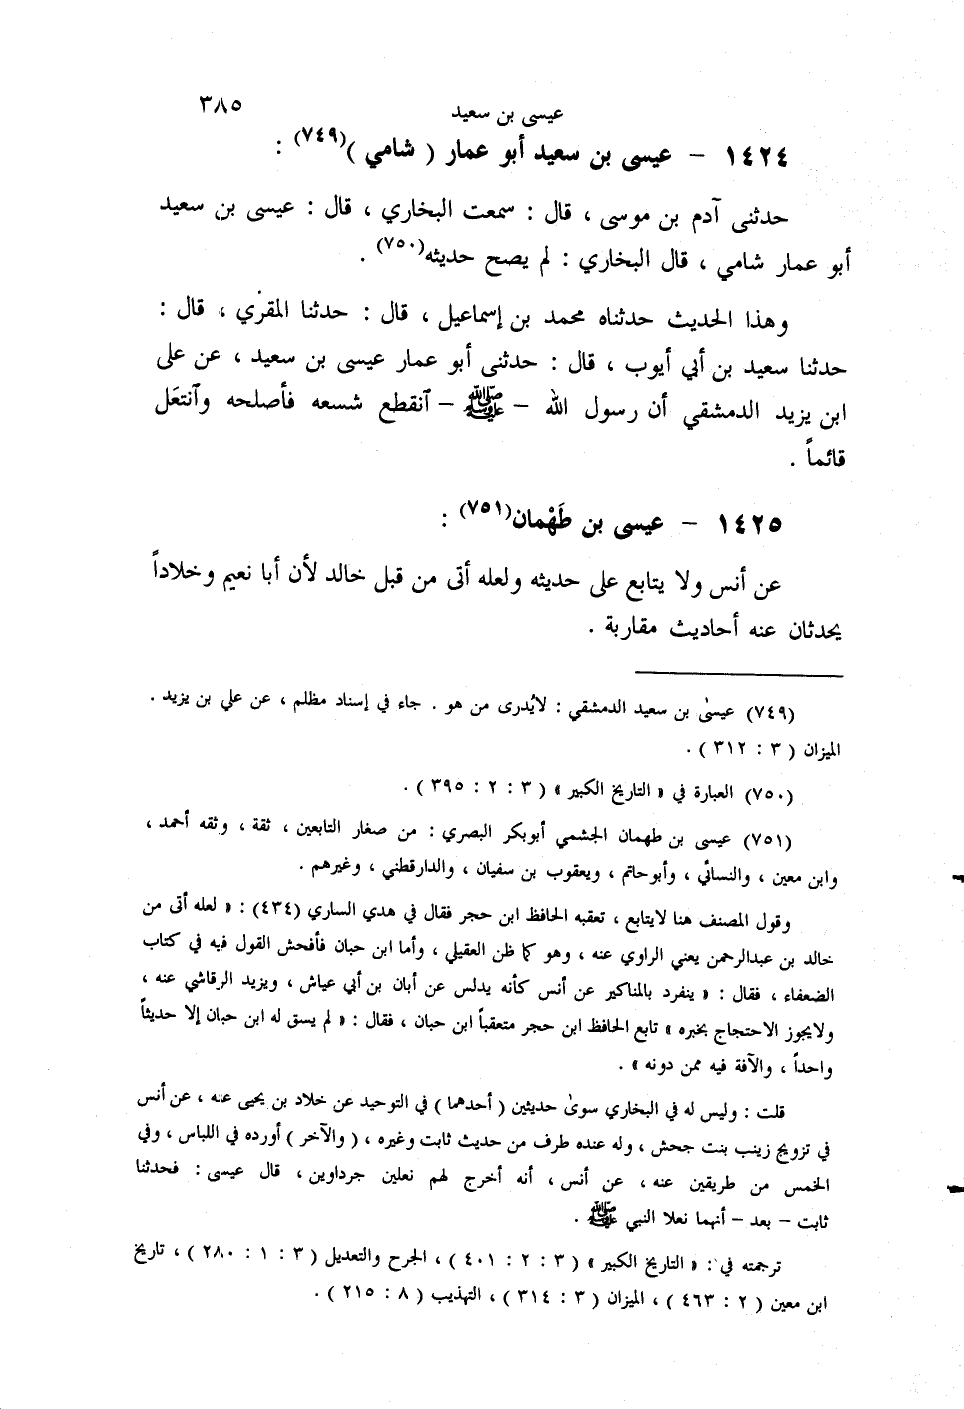 ٣٨٥
عيسى بن سعيد
١٤٢٤ – عيسى بن سعيد أبو عمار ( شامي )(٧٤٩) :
حدثنى آدم بن موسى ، قال : سمعت البخاري ، قال : عيسى بن سعيد
أبو عمار شامي ، قال البخاري : لم يصح حديثه(٧٥٠) .
وهذا الحديث حدثناه محمد بن إسماعيل ، قال : حدثنا المقرْي ، قال :
حدثنا سعيد بن أبي أيوب ، قال : حدثنى أبو عمار عيسى بن سعيد ، عن على
ابن يزيد الدمشقي أن رسول الله – ﷺ – ٱنقطع شسعه فأصلحه وٱنتعَل
قائماً .
١٤٢٥ – عيسى بن طَهْمان(٧٥١) :
عن أنس ولا يتابع على حديثه ولعله أتى من قبل خالد لأن أبا نعيم وخلاداً
يحدثان عنه أحاديث مقاربة .
(٧٤٩) عيسىٰ بن سعيد الدمشقي : لايُدرى من هو . جاء في إسناد مظلم ، عن علي بن يزيد .
الميزان ( ٣ : ٣١٢ ) .
(٧٥٠) العبارة في « التاريخ الكبير » ( ٣ : ٢ : ٣٩٥ ) .
(٧٥١) عيسى بن طهمان الجشمي أبوبكر البصري : من صغار التابعين ، ثقة ، وثقه أحمد ،
وابن معين ، والنسائي ، وأبوحاتم ، ويعقوب بن سفيان ، والدارقطني ، وغيرهم .
وقول المصنف هنا لايتابع ، تعقبه الحافظ ابن حجر فقال في هدي الساري (٤٣٤) : « لعله أتى من
خالد بن عبدالرحمن يعني الراوي عنه ، وهو كما ظن العقيلي ، وأما ابن حبان فأفحش القول فيه في كتاب
الضعفاء ، فقال : « ينفرد بالمناكير عن أنس كأنه يدلس عن أبان بن أبي عياش ، ويزيد الرقاشي عنه ،
ولايجوز الاحتجاج بخبره » تابع الحافظ ابن حجر متعقباً ابن حبان ، فقال : « لم يسق له ابن حبان إلا حديثاً
واحداً ، والآفة فيه ممن دونه » .
قلت : وليس له في البخاري سوىٰ حديثين ( أحدهما ) في التوحيد عن خلاد بن يحيى عنه ، عن أنس
في تزويج زينب بنت جحش ، وله عنده طرف من حديث ثابت وغيره ، ( والآخر ) أورده في اللباس ، وفي
الخمس من طريقين عنه ، عن أنس ، أنه أخرج لهم نعلين جرداوين ، قال عيسى : فحدثنا
ثابت – بعد – أنهما نعلا النبي ﷺ .
ترجمته في : « التاريخ الكبير » ( ٣ : ٢ : ٤٠١ ) ، الجرح والتعديل ( ٣ : ١ : ٢٨٠ ) ، تاريخ
ابن معين ( ٢ : ٤٦٣ ) ، الميزان ( ٣ : ٣١٤ ) ، التهذيب ( ٨ : ٢١٥ ) .